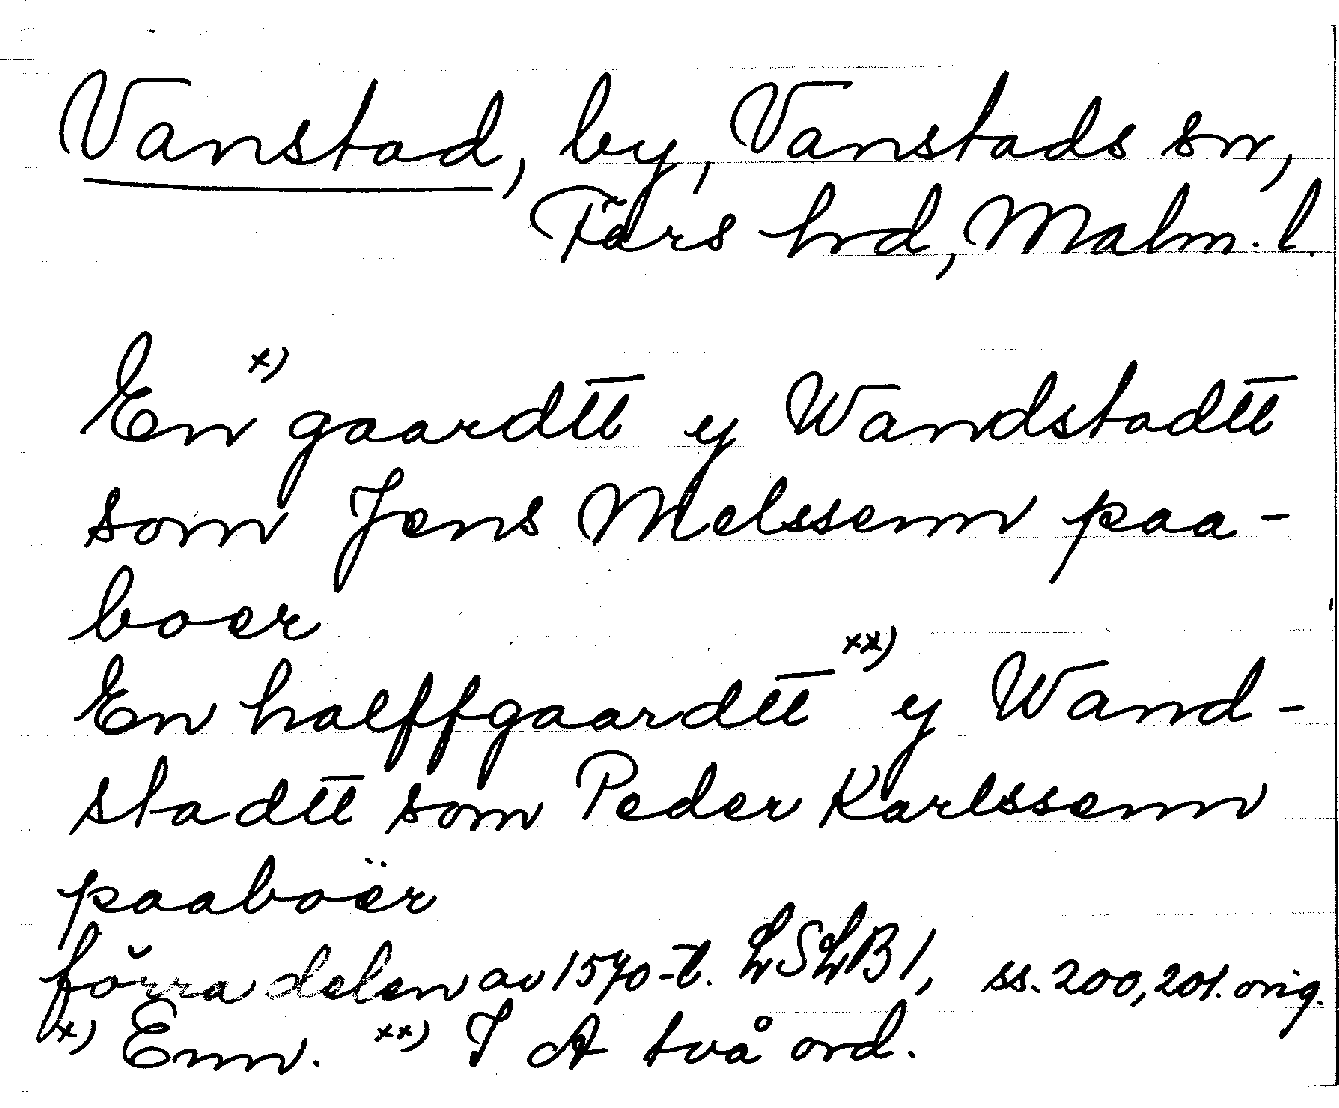 Vanstad, by, Vanstads sn,
Färs hrd, Malm. l.
En x) gaardtt y Wandstadtt
som Jens Melssenn paa-
boer
En halffgaardtt xx) y Wand-
stadtt som Peder Karlssenn
paaboër
förra delen av 1570-t. LSLB 1, ss. 200, 201. orig.
x) Enn. xx) I A två ord.